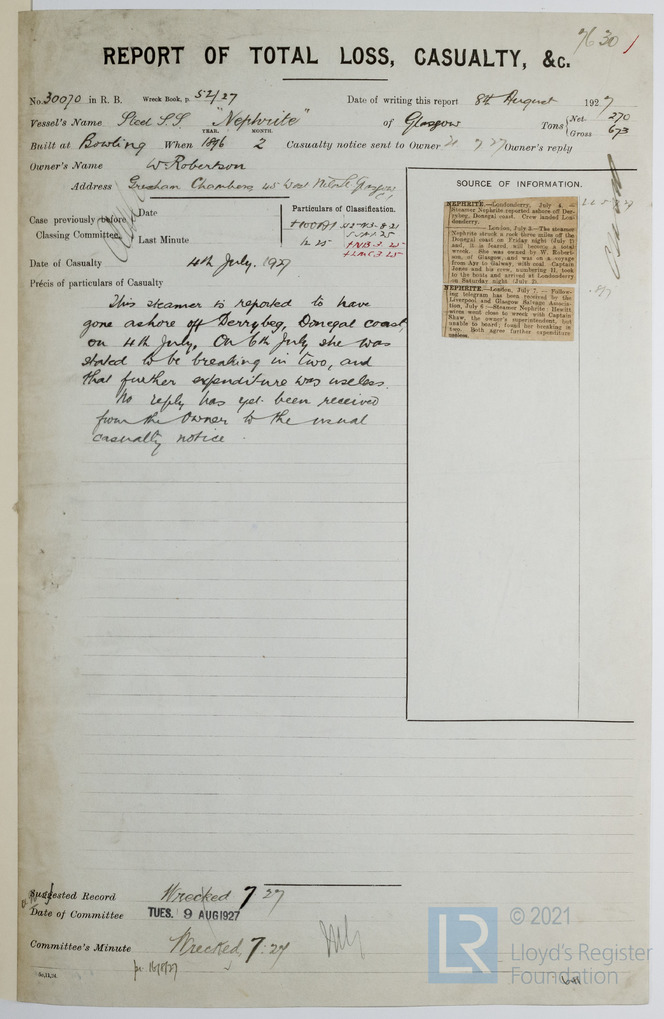 7630
REPORT OF TOTAL LOSS, CASUALTY, &c.
No. 30070 in R. B. Wreck Book, p. 52/27 Date of writing this report 8th August 1927
Vessel's Name Steel S.S. "Nephrite" of Glasgow Tons { Net 270
Gross 673
YEAR. MONTH.
Built at Bowling When 1896 2 Casualty notice sent to Owner 7 27 Owner's reply
Owner's Name W Robertson
Address Gresham Chambers 45 West Nile St Glasgow
SOURCE OF INFORMATION.
Case previously before Classing Committee.
Date
Last Minute
Particulars of Classification.
+100A1
Date of Casualty 4th July, 1927
Précis of particulars of Casualty
This steamer is reported to have
gone ashore off Derrybeg, Donegal coast,
on 4th July, On 6th July she was
stated to be breaking in two, and
that further expenditure was useless.
No reply has yet been received
from the Owner to the usual
casualty notice.
NEPHRITE.—Londonderry, July 4.—
Steamer Nephrite reported ashore off Der-
rybeg, Donegal coast. Crew landed Lon-
donderry.
— London, July 3.—The steamer
Nephrite struck a rock three miles off the
Donegal coast on Friday night (July 1)
and, it is feared, will become a total
wreck. She was owned by W. Robert-
son, of Glasgow, and was on a voyage
from Ayr to Galway, with coal. Captain
Jones and his crew, numbering 11, took
to the boats and arrived at Londonderry
on Saturday night (July 2).
NEPHRITE.—London, July 7.—Follow-
ing telegram has been received by the
Liverpool and Glasgow Salvage Associa-
tion, July 6:—Steamer Nephrite: Hewitt
wires went close to wreck with Captain
Shaw, the owner's superintendent, but
unable to board; found her breaking in
two. Both agree further expenditure
useless.
Suggested Record Wrecked 7 27
Date of Committee TUES. 9 AUG 1927
Committee's Minute Wrecked, 7.27
© 2021
LR Lloyd's Register
Foundation